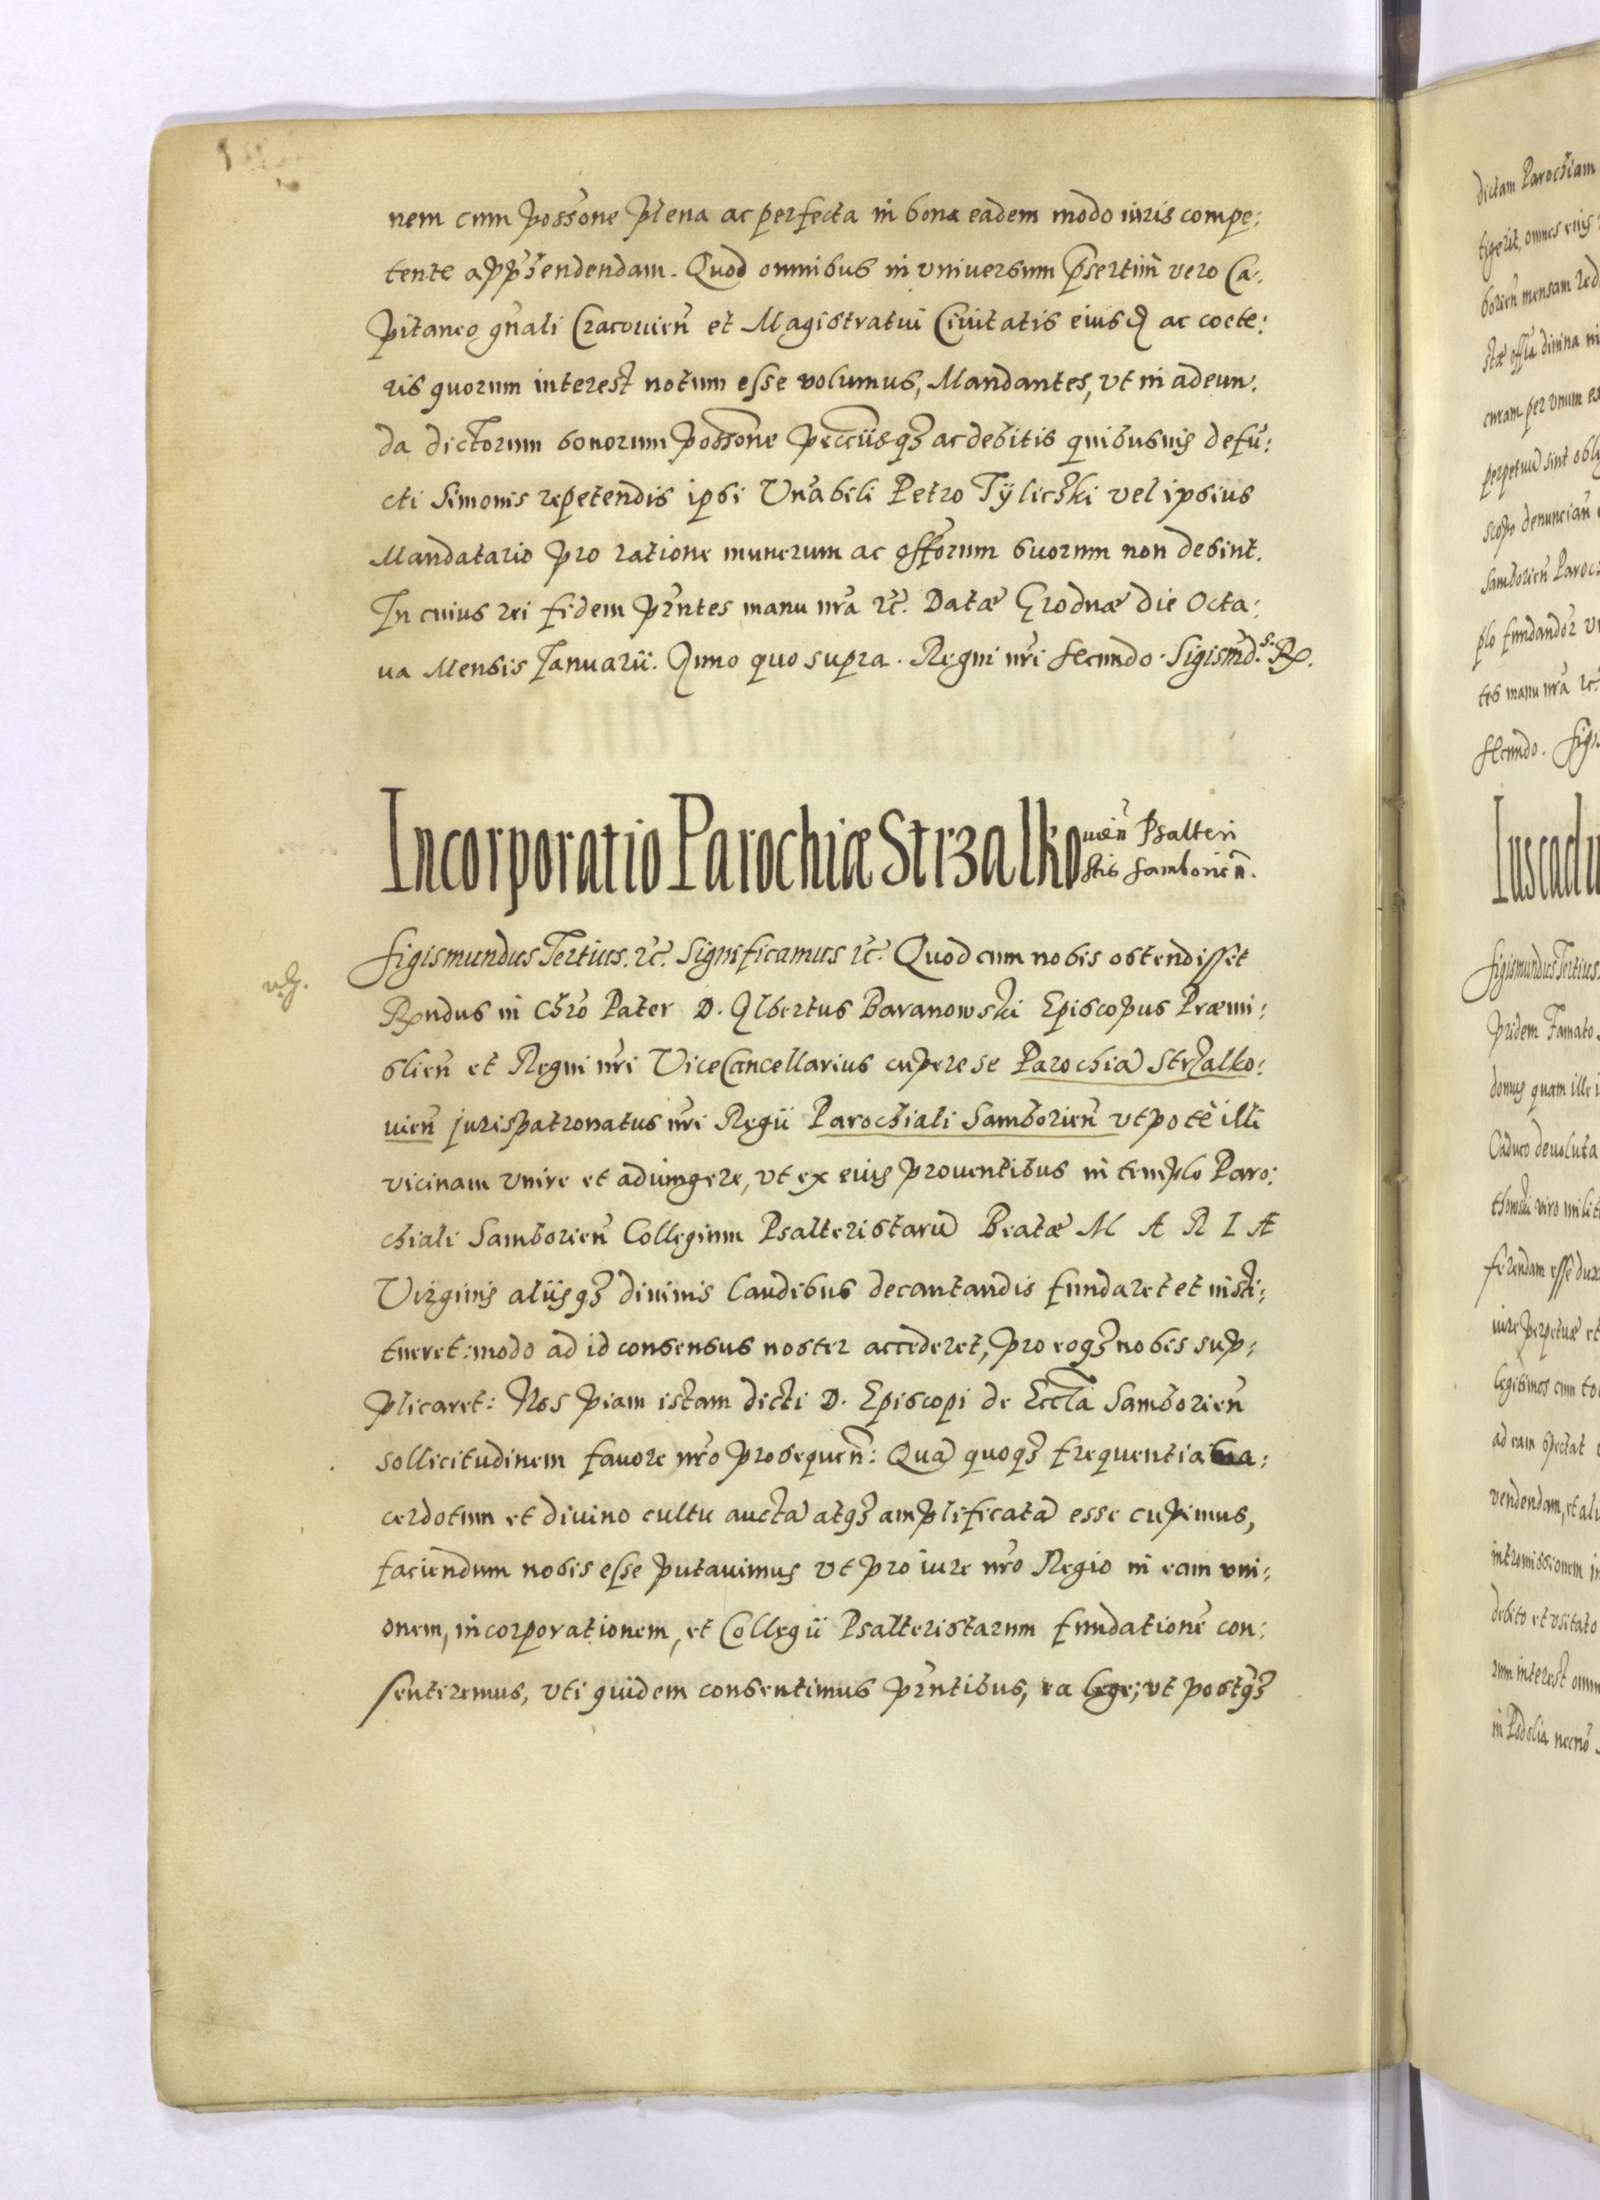 nem cum possone plena ac perfecta in bona eadem modo iuris compe:
tente apprehendendam. Quod omnibus in vniuersum psertim vero Ca:
pitaneo gnali Cracouien et Magistratui Ciuitatis eiusd ac coete:
ris quorum interest notum esse volumus, Mandantes, vt in adeun:
da dictorum bonorum possone peccuisqз ac debitis quibusuis defu:
cti Simonis repetendis ipsi Vnabili Petro Tÿlicski vel ipsius
Mandatario pro ratione munerum ac offorum suorum non desint.
In cuius rei fidem prntes manu nra rc. Datæ Grodnæ die Octa:
ua Mensis Ianuarii. Anno quo supra. Regni nri secundo. Sigismd.s. Rx.
Incorporatio Parochiæ Strzalkouien Psalteri
stis Samborien.
Sigismundus Tertius. rc. Significamus rc. Quod cum nobis ostendisset
Rndus in Chro Pater D. Albertus Baranowski Episcopus Præmi:
slien et Regni nri ViceCancellarius cupere se Parochiā Strzalko:
uien jurispatronatus nri Regii Parochiali Samborien vtpote illi
vicinam vnire et adiungere, vt ex eius prouentibus in templo Paro:
chiali Samborien Collegium Psalteristarū Beatæ M A R I Æ
Virginis aliisqз diuinis laudibus decantandis fundaret et insti:
tueret: modo ad id consensus noster accederet, pro eoqз nobis sup:
plicaret: Nos piam istam dicti D. Episcopi de Eccla Samborien
sollicitudinem fauore nro prosequen: Quā quoqз frequentia sa:
cerdotum et diuino cultu auctā atqз amplificatā esse cupimus,
faciendum nobis esse putauimus vt pro iure nro Regio in eam vni:
onem, incorporationem, et Collegii Psalteristarum fundatione con:
sentiremus, vti quidem consentimus prntibus, ea lege; vt postqз
dictam Parochiam
tigerit, omnes eius
borien mensam red
stæ offia diuina in
curam per vnum ex
perpetuo sint obli
scopo denuncian
Samborien Paroc
plo fundandor v
tes manu nra rc.
secundo. Sigi
Ius cadu
Sigismundus Tertius
pridem Famato
domus quam ille i
Caduco deuoluta
thowski viro milit
ferendam esse dux
iure perpetuæ et
legitimos cum to
ad eam spectat
vendendam, et ali
intromissionem in
debito et vsitato
rum interest omn
in Podolia necno